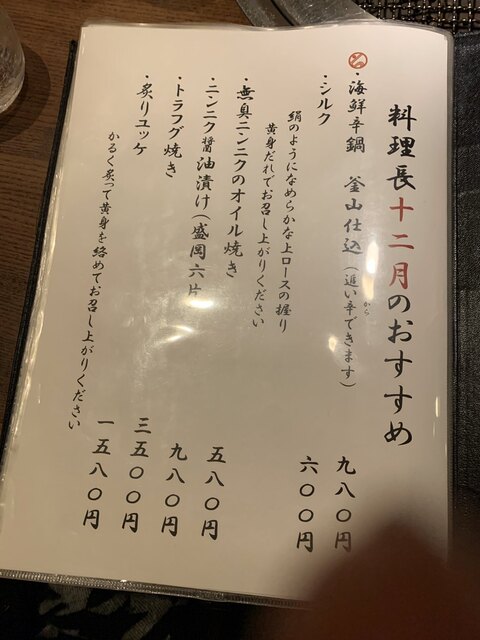 料理長十二月のおすすめ
・海鮮辛鍋 釜山仕込(追い辛できます) 九八〇円
から
・シルク 六〇〇円
絹のようになめらかな上ロースの握り
黄身だれでお召し上がりください
・無臭ニンニクのオイル焼き 五八〇円
・ニンニク醤油漬け(盛岡六片 九八〇円
・トラフグ焼き 三五〇〇円
・炙りユッケ 一五八〇円
かるく炙って黄身を絡めてお召し上がりください